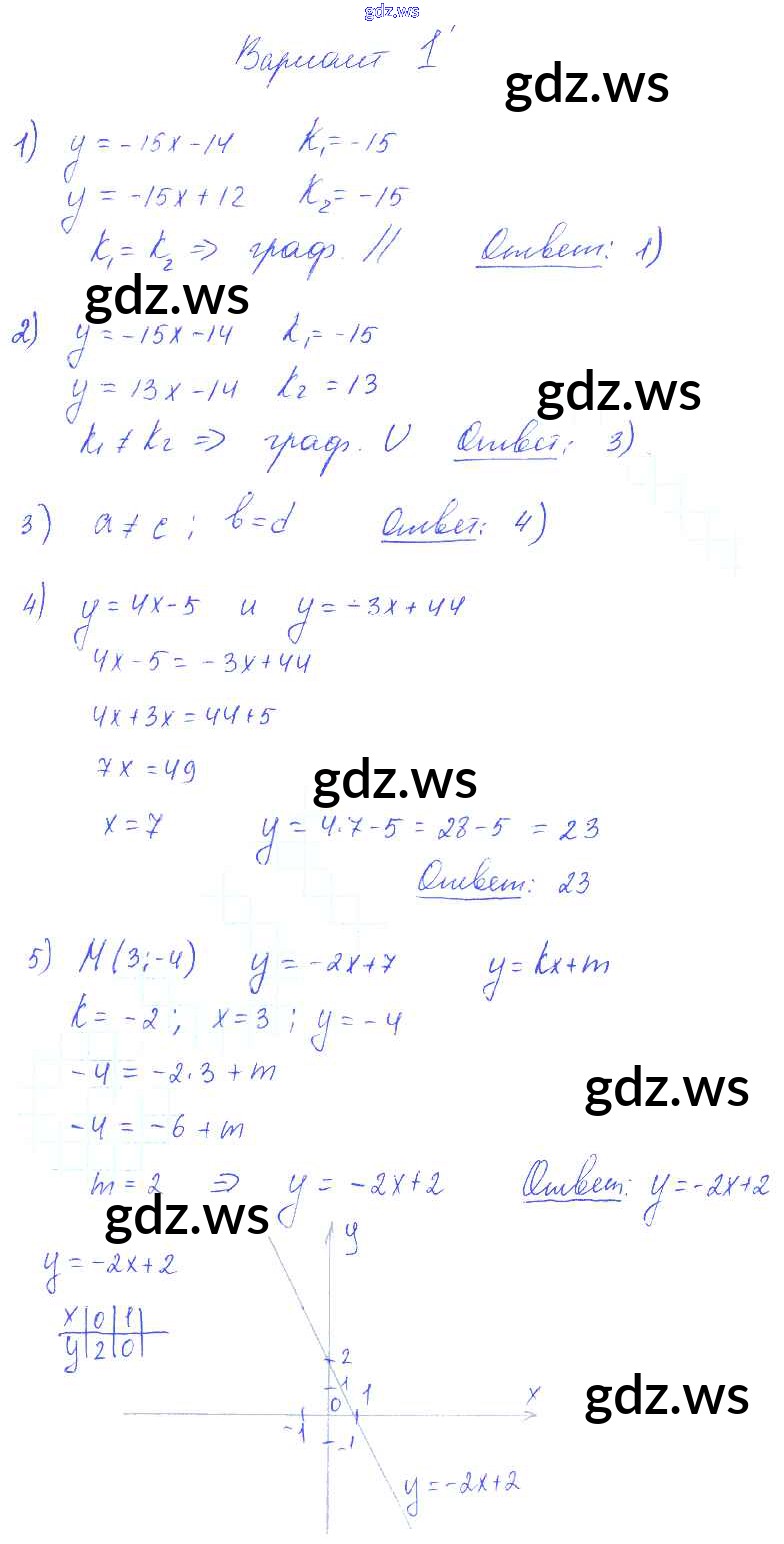 gdz.ws
Вариант 1
gdz.ws
1) y = -15x - 14 k₁ = -15
y = -15x + 12 k₂ = -15
k₁ = k₂ => граф. // Ответ: 1)
gdz.ws
2) y = -15x - 14 k₁ = -15
y = 13x - 14 k₂ = 13
gdz.ws
k₁ ≠ k₂ => граф. U Ответ: 3)
3) a ≠ c ; b = d Ответ: 4)
4) y = 4x - 5 и y = -3x + 44
4x - 5 = -3x + 44
4x + 3x = 44 + 5
7x = 49
gdz.ws
x = 7 y = 4·7 - 5 = 28 - 5 = 23
Ответ: 23
5) M (3; -4) y = -2x + 7 y = kx + m
k = -2 ; x = 3 ; y = -4
-4 = -2·3 + m
gdz.ws
-4 = -6 + m
m = 2 => y = -2x + 2 Ответ: y = -2x + 2
gdz.ws
y
y = -2x + 2
x | 0 | 1 |
y | 2 | 0 |
2
1
0 1 x
gdz.ws
-1
-1
y = -2x + 2